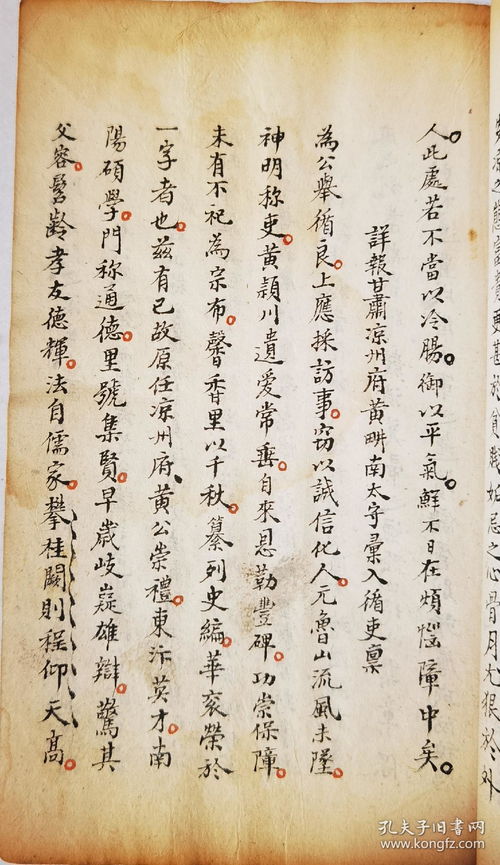 人此處若不當以冷腸御以平氣鮮不日在煩惱障中矣
詳報甘肅涼州府黃畊南太守彙入循吏稟
為公舉循良上應採訪事竊以誠信化人元魯山流風未墜
神明称吏黃潁川遺愛常垂自來恩勒豐碑功崇保障
未有不祀為宗布馨香里以千秋纂列史編華衮榮於
一字者也茲有已故原任涼州府黃公崇禮東汴英才南
陽碩學門称通德里號集賢早歲岐嶷雄辯驚其
父客髫齡孝友德輝法自儒家攀桂闕則程仰天高
孔夫子旧书网
www.kongfz.com